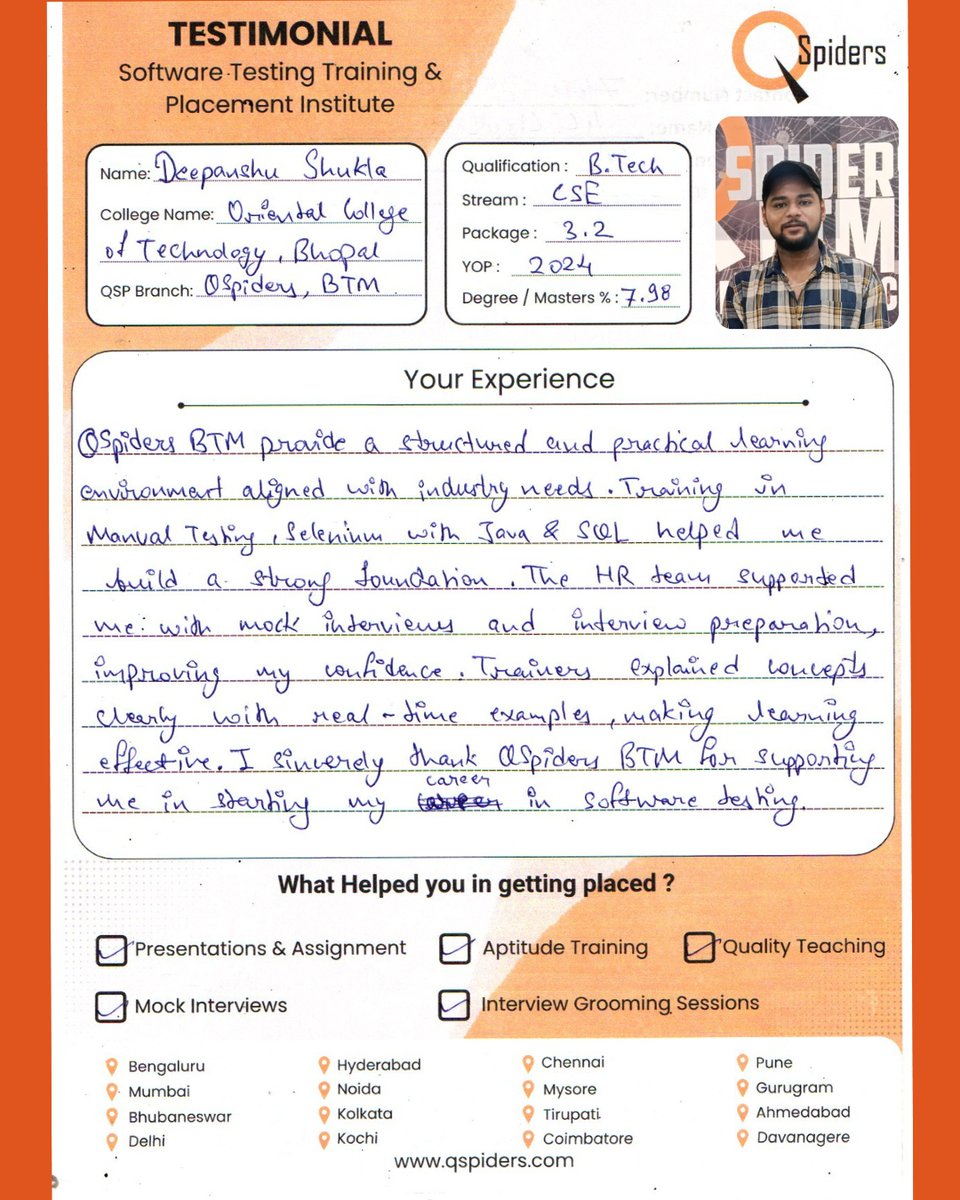 TESTIMONIAL
Software Testing Training &
Placement Institute
QSpiders
Name: Deepanshu Shukla
College Name: Oriental College
of Technology, Bhopal
QSP Branch: QSpiders, BTM
Qualification : B.Tech
Stream : CSE
Package : 3.2
YOP : 2024
Degree / Masters % : 7.98
SPIDER
Your Experience
QSpiders BTM provide a structured and practical learning
environment aligned with industry needs. Training in
Manual Testing, Selenium with Java & SQL helped me
build a strong foundation. The HR team supported
me with mock interviews and interview preparation,
improving my confidence. Trainers explained concepts
clearly with real-time examples, making learning
effective. I sincerely thank QSpiders BTM for supporting
me in starting my career in software testing.
What Helped you in getting placed ?
Presentations & Assignment
Aptitude Training
Quality Teaching
Mock Interviews
Interview Grooming Sessions
Bengaluru
Mumbai
Bhubaneswar
Delhi
Hyderabad
Noida
Kolkata
Kochi
Chennai
Mysore
Tirupati
Coimbatore
Pune
Gurugram
Ahmedabad
Davanagere
www.qspiders.com